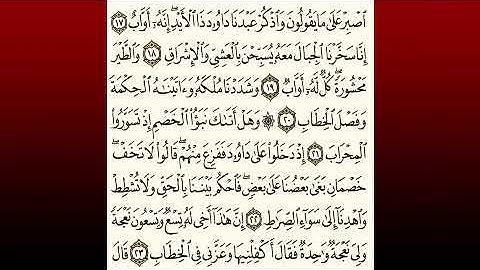 ٱصۡبِرۡ عَلَىٰ مَا يَقُولُونَ وَٱذۡكُرۡ عَبۡدَنَا دَاوُۥدَ ذَا ٱلۡأَيۡدِۖ إِنَّهُۥٓ أَوَّابٌ ١٧
إِنَّا سَخَّرۡنَا ٱلۡجِبَالَ مَعَهُۥ يُسَبِّحۡنَ بِٱلۡعَشِيِّ وَٱلۡإِشۡرَاقِ ١٨ وَٱلطَّيۡرَ
مَحۡشُورَةٗۖ كُلّٞ لَّهُۥٓ أَوَّابٞ ١٩ وَشَدَدۡنَا مُلۡكَهُۥ وَءَاتَيۡنَٰهُ ٱلۡحِكۡمَةَ
وَفَصۡلَ ٱلۡخِطَابِ ٢٠ ۞ وَهَلۡ أَتَىٰكَ نَبَؤُاْ ٱلۡخَصۡمِ إِذۡ تَسَوَّرُواْ
ٱلۡمِحۡرَابَ ٢١ إِذۡ دَخَلُواْ عَلَىٰ دَاوُۥدَ فَفَزِعَ مِنۡهُمۡۖ قَالُواْ لَا تَخَفۡۖ
خَصۡمَانِ بَغَىٰ بَعۡضُنَا عَلَىٰ بَعۡضٖ فَٱحۡكُم بَيۡنَنَا بِٱلۡحَقِّ وَلَا تُشۡطِطۡ
وَٱهۡدِنَآ إِلَىٰ سَوَآءِ ٱلصِّرَٰطِ ٢٢ إِنَّ هَٰذَآ أَخِي لَهُۥ تِسۡعٞ وَتِسۡعُونَ نَعۡجَةٗ
وَلِيَ نَعۡجَةٞ وَٰحِدَةٞ فَقَالَ أَكۡفِلۡنِيهَا وَعَزَّنِي فِي ٱلۡخِطَابِ ٢٣ قَالَ